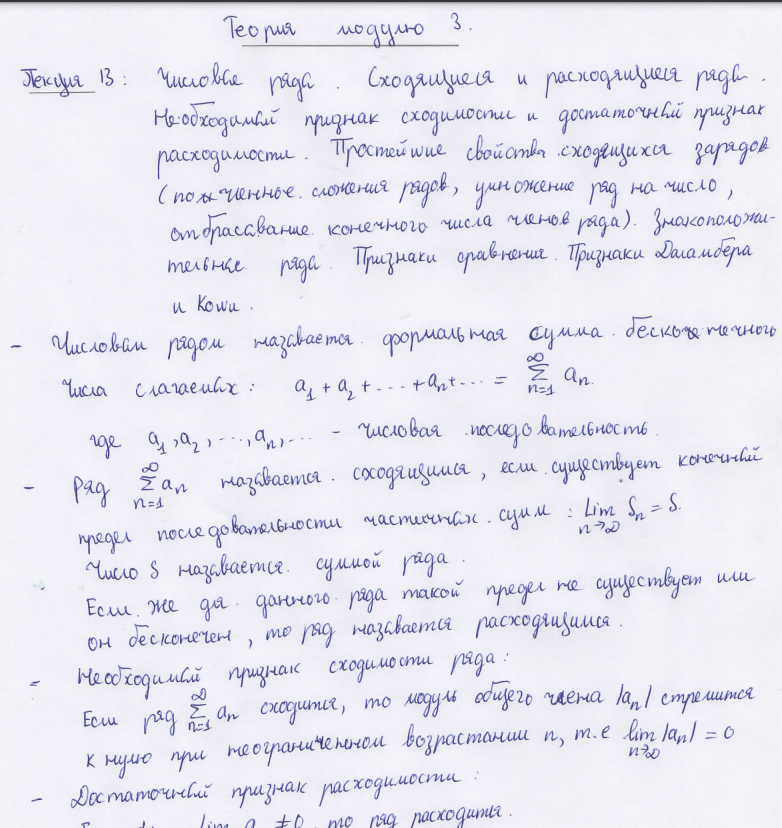 Теория модулю 3.
Лекция 13: Числовые ряды. Сходящиеся и расходящиеся ряды.
Необходимый признак сходимости и достаточный признак
расходимости. Простейшие свойства сходящихся зарядов
(почленное сложения рядов, умножение ряд на число,
отбрасавание конечного числа членов ряда). Знакоположи-
тельные ряды. Признаки сравнения. Признаки Даламбера
и Коши.
- Числовым рядом называется формальная сумма бесконечного
числа слагаемых: a₁ + a₂ + ... + aₙ + ... = ∑ₙ₌₁^∞ aₙ.
где a₁, a₂, ..., aₙ, ... - числовая последовательность.
- Ряд ∑ₙ₌₁^∞ aₙ называется сходящимся, если существует конечный
предел последовательности частичных сумм: Lim n→∞ Sₙ = S.
Число S называется суммой ряда.
Если же для данного ряда такой предел не существует или
он бесконечен, то ряд называется расходящимся.
- Необходимый признак сходимости ряда:
Если ряд ∑ₙ₌₁^∞ aₙ сходится, то модуль общего члена |aₙ| стремится
к нулю при неограниченном возрастании n, т.е lim n→∞ |aₙ| = 0
- Достаточный признак расходимости:
lim aₙ ≠ 0, то ряд расходится.